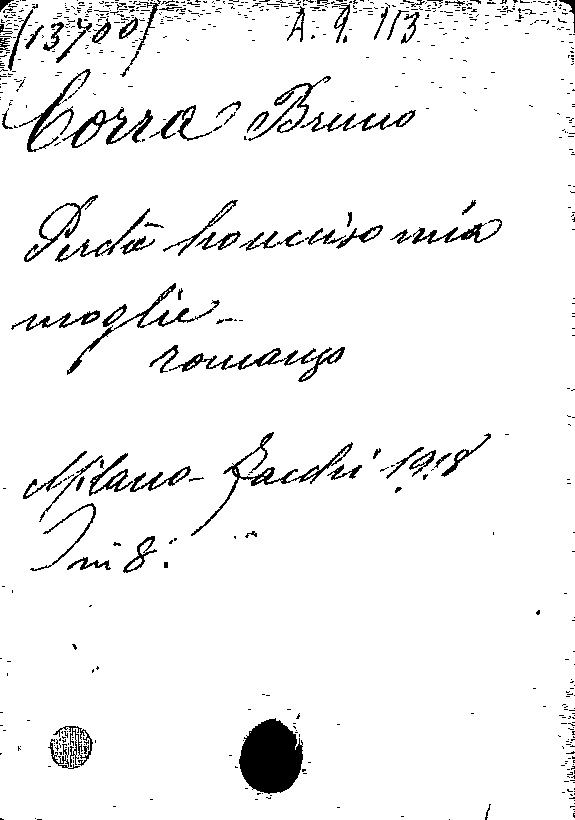 (13700) A. 9. 113
Corra Bruno
Perchè ho ucciso mia
moglie -
romanzo
Milano - Facchi 1918
In 8.